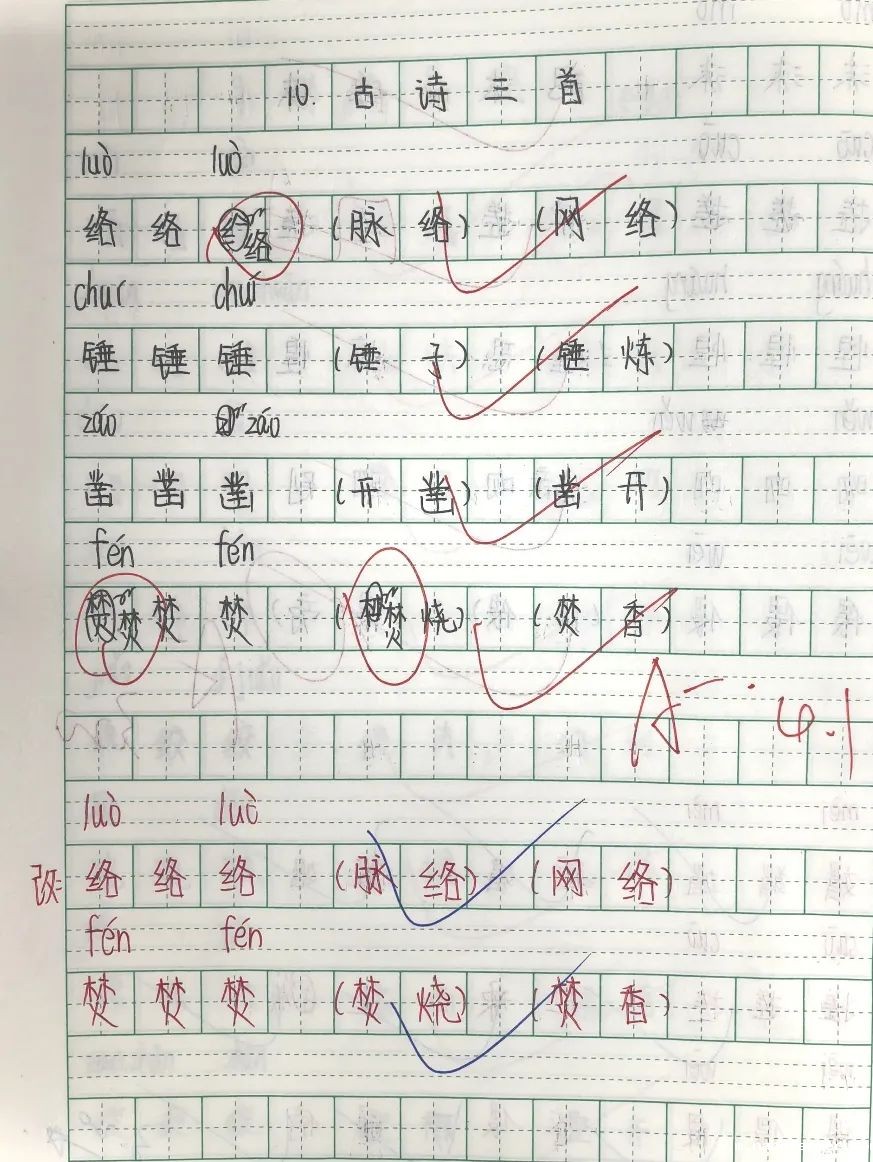 10. 古诗三首
luò luò
络 络 络 (脉络) (网络)
chuí chuí
锤 锤 锤 (锤子) (锤炼)
záo záo
凿 凿 凿 (开凿) (凿开)
fén fén
焚 焚 焚 (焚烧) (焚香)
A- · 6.1
luò luò
改: 络 络 络 (脉络) (网络)
fén fén
焚 焚 焚 (焚烧) (焚香)